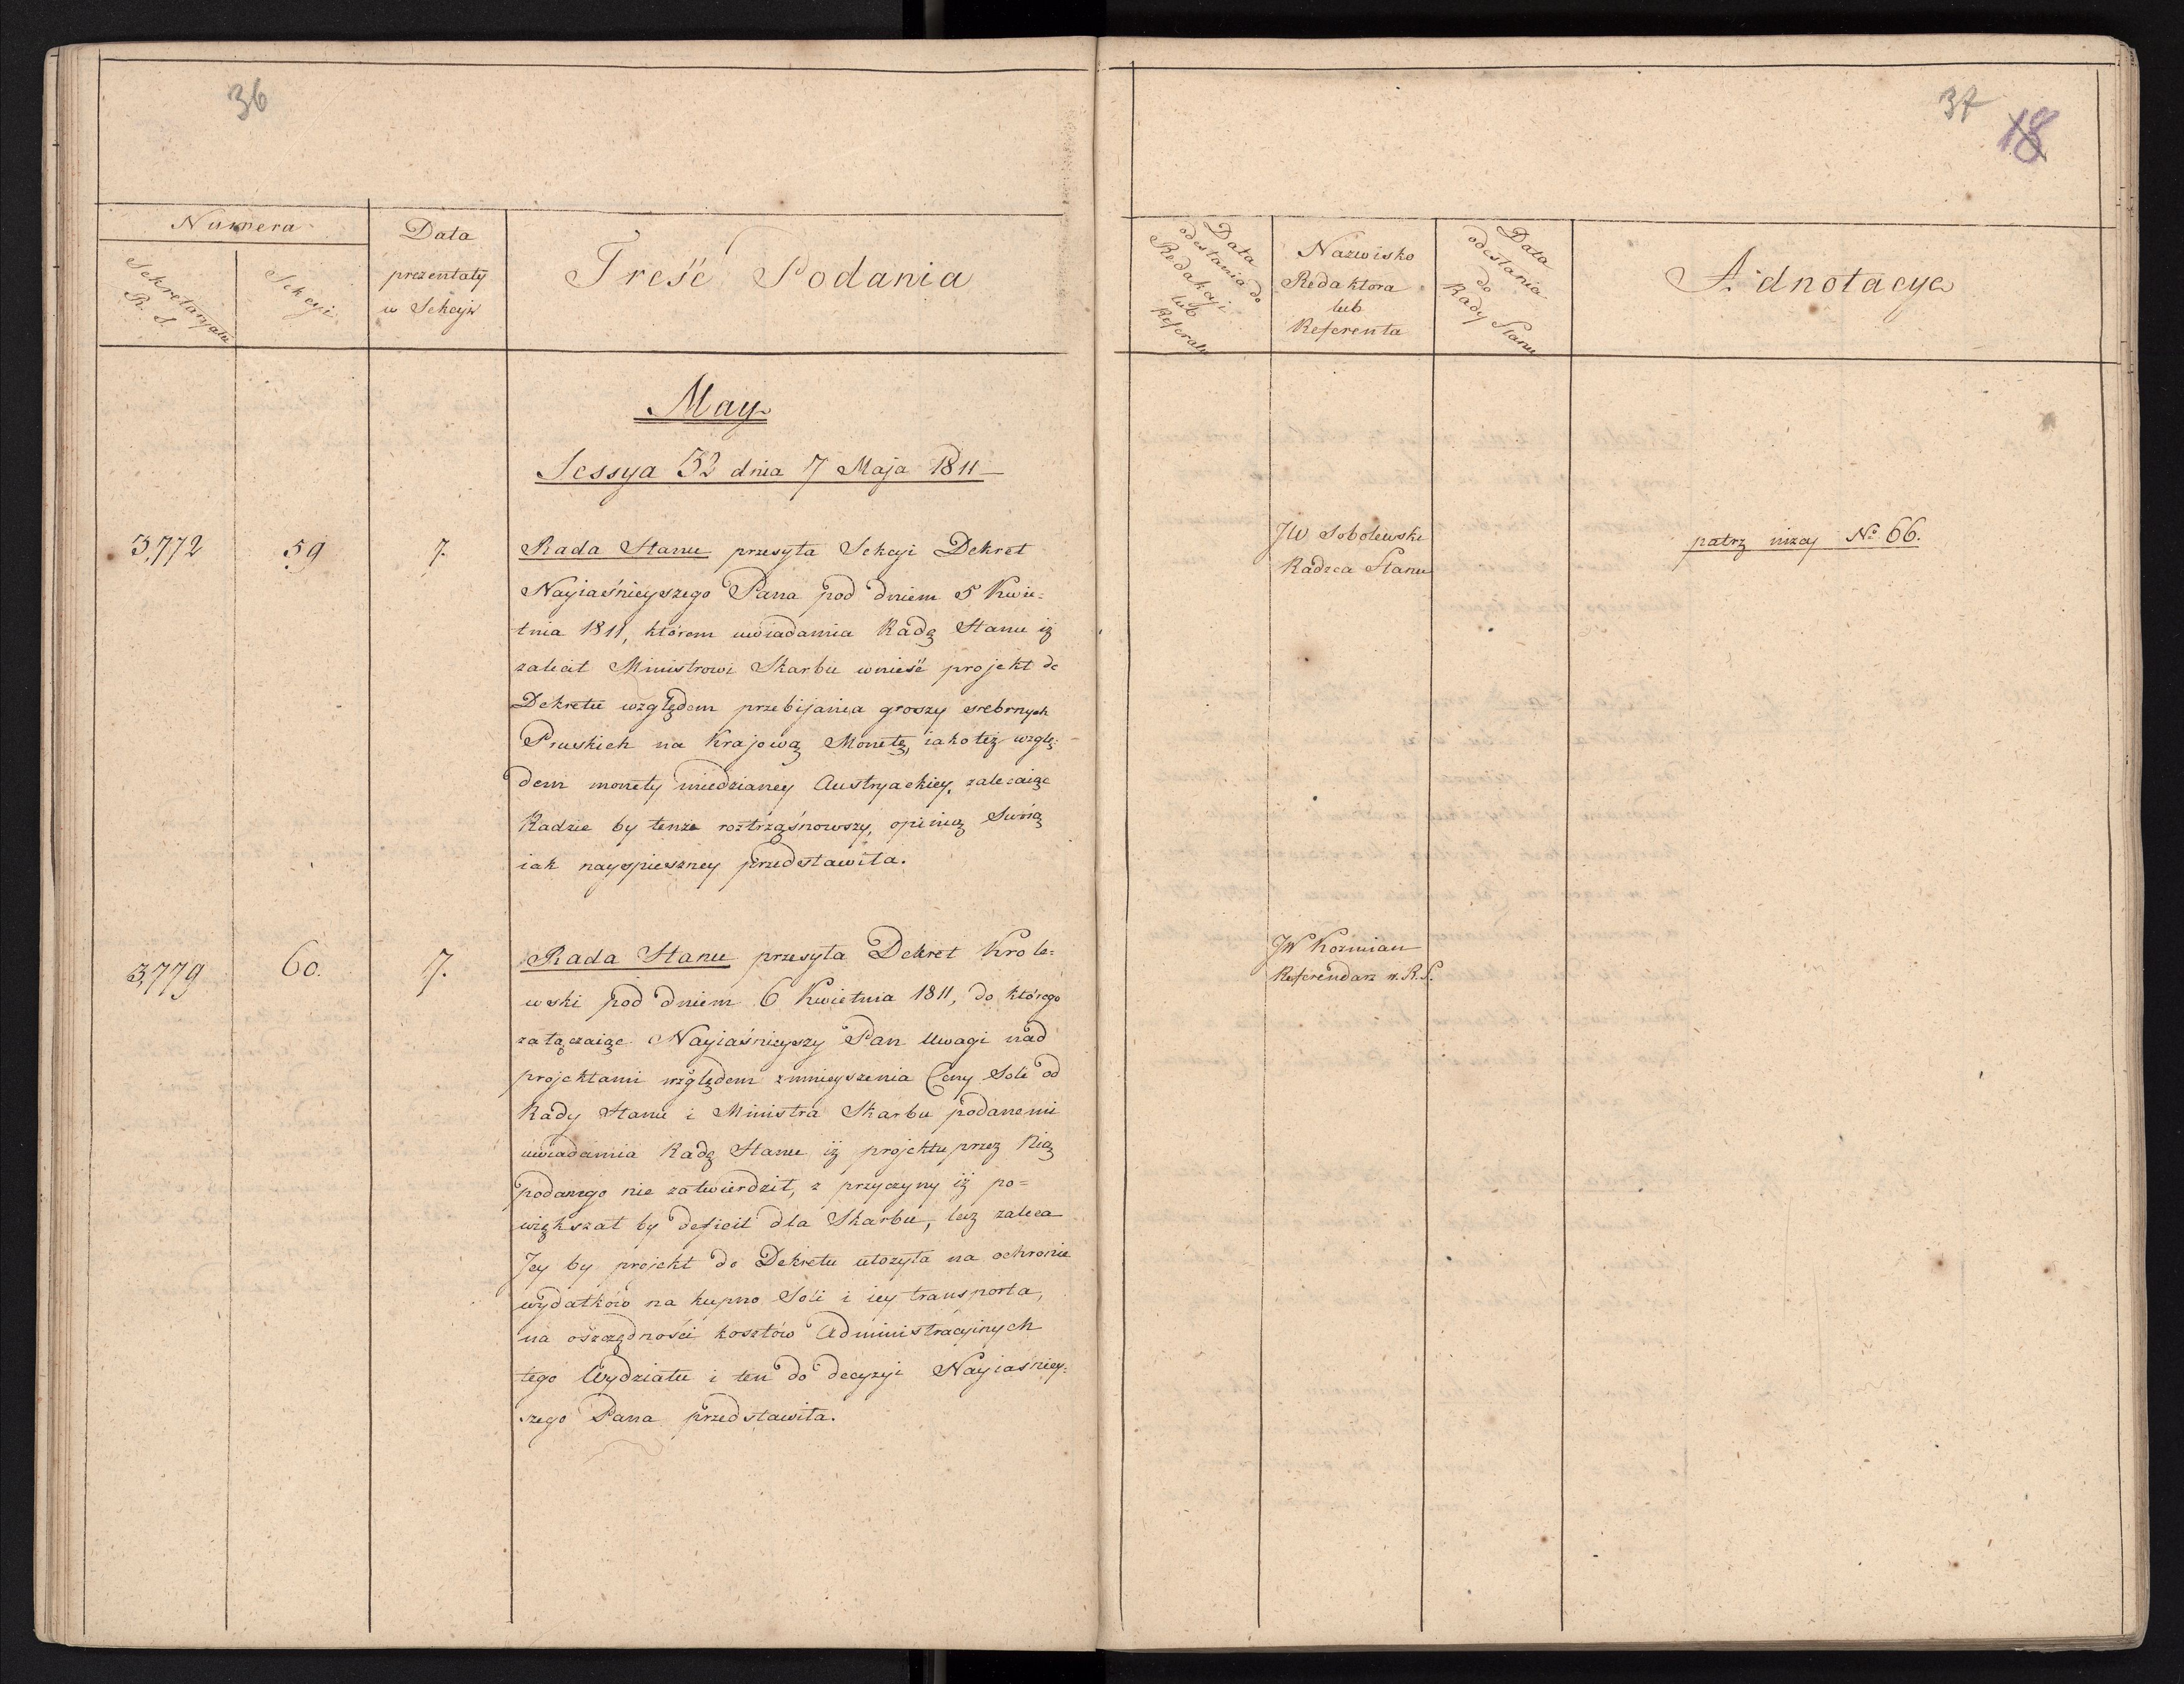 36
Numera
Sekretaryatu R. S.
Sekcyi
Data prezentaty w Sekcyi
Treść Podania
May
Sessya 32 dnia 7 Maja 1811
3,772
59
7.
Rada Stanu przesyła Sekcyi Dekret
Nayiaśnieyszego Pana pod dniem 5 Kwie=
tnia 1811, którem uwiadamia Radę Stanu iż
zalecił Ministrowi Skarbu wnieść projekt do
Dekretu względem przebijania groszy srebrnych
Pruskich na Krajową Monetę, iako też wzglę=
dem monety miedzianey Austryackiey, zalecaiąc
Radzie by tenże roztrząsnowszy, opinią Swoią
iak nayspieszney przedstawiła.
3,779
60.
7.
Rada Stanu przesyła Dekret Krole=
wski pod dniem 6 Kwietnia 1811, do którego
załączaiąc Nayiaśnieyszy Pan Uwagi nad
projektami względem zmnieyszenia Ceny Soli od
Rady Stanu i Ministra Skarbu podanemi
uwiadamia Radę Stanu, iż projektu przez Nią
podanego nie zatwierdził, z przyczyny iż po=
większał by deficit dla Skarbu, lecz zaleca
Jey by projekt do Dekretu ułożyła na ochronie
wydatków na kupno Soli i iey transporta,
na oszczędności kosztów Administracyinych
tego Wydziału i ten do decyzyi Nayiasniey=
szego Pana przedstawiła.
37
18
Data odesłania do Redakcyi lub Referatu
Nazwisko
Redaktora
lub
Referenta
Data odesłania do Rady Stanu
Adnotacye
JW Sobolewski
Radzca Stanu
patrz nizey No 66.
JW Kozmian
Referendarz w. R. S.